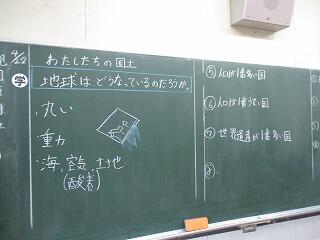 4/22
学
わたしたちの国土
地球は、どうなっているのだろうか。
丸い
動
海、空気、土地
(酸素)
⑤ 人口が1番多い国
⑥ 人口が1番少ない国
⑦ 世界遺産が1番多い国
⑧